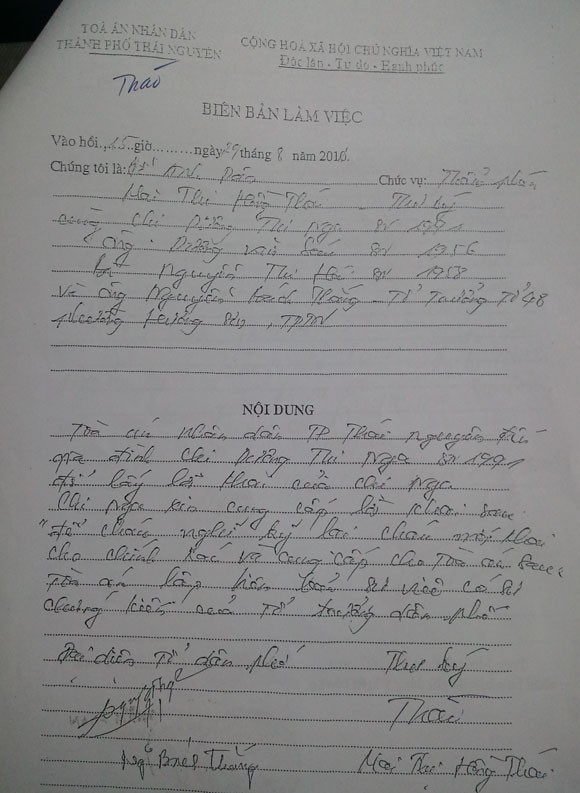 TOÀ ÁN NHÂN DÂN
THÀNH PHỐ THÁI NGUYÊN
CỘNG HOÀ XÃ HỘI CHỦ NGHĨA VIỆT NAM
Độc lập - Tự do - Hạnh phúc
Thảo
BIÊN BẢN LÀM VIỆC
Vào hồi 15 giờ ......... ngày 29 tháng 8 năm 2016.
Chúng tôi là: Chức vụ: Thẩm phán
Mai Thị Hồng Thảo Thư ký
cùng chị Dương Thị Nga SN 1991
Ông: Dương Văn SN 1956
Bà Nguyễn Thị SN 1958
và ông Nguyễn Thắng - Tổ trưởng Tổ 48
phường Hương Sơn, TPTN
NỘI DUNG
Toà án nhân dân TP Thái Nguyên đến
gia đình chị Dương Thị Nga SN 1991
để lấy lời khai của chị Nga
Chị Nga xin cung cấp lời khai sau
"để cháu nghĩ kỹ lại cháu mới khai
cho chính xác và cung cấp cho Toà án sau"
Toà án lập biên bản sự việc có sự
chứng kiến của Tổ trưởng dân phố
Đại diện Tổ dân phố Thư ký
Thảo
Thắng Mai Thị Hồng Thảo